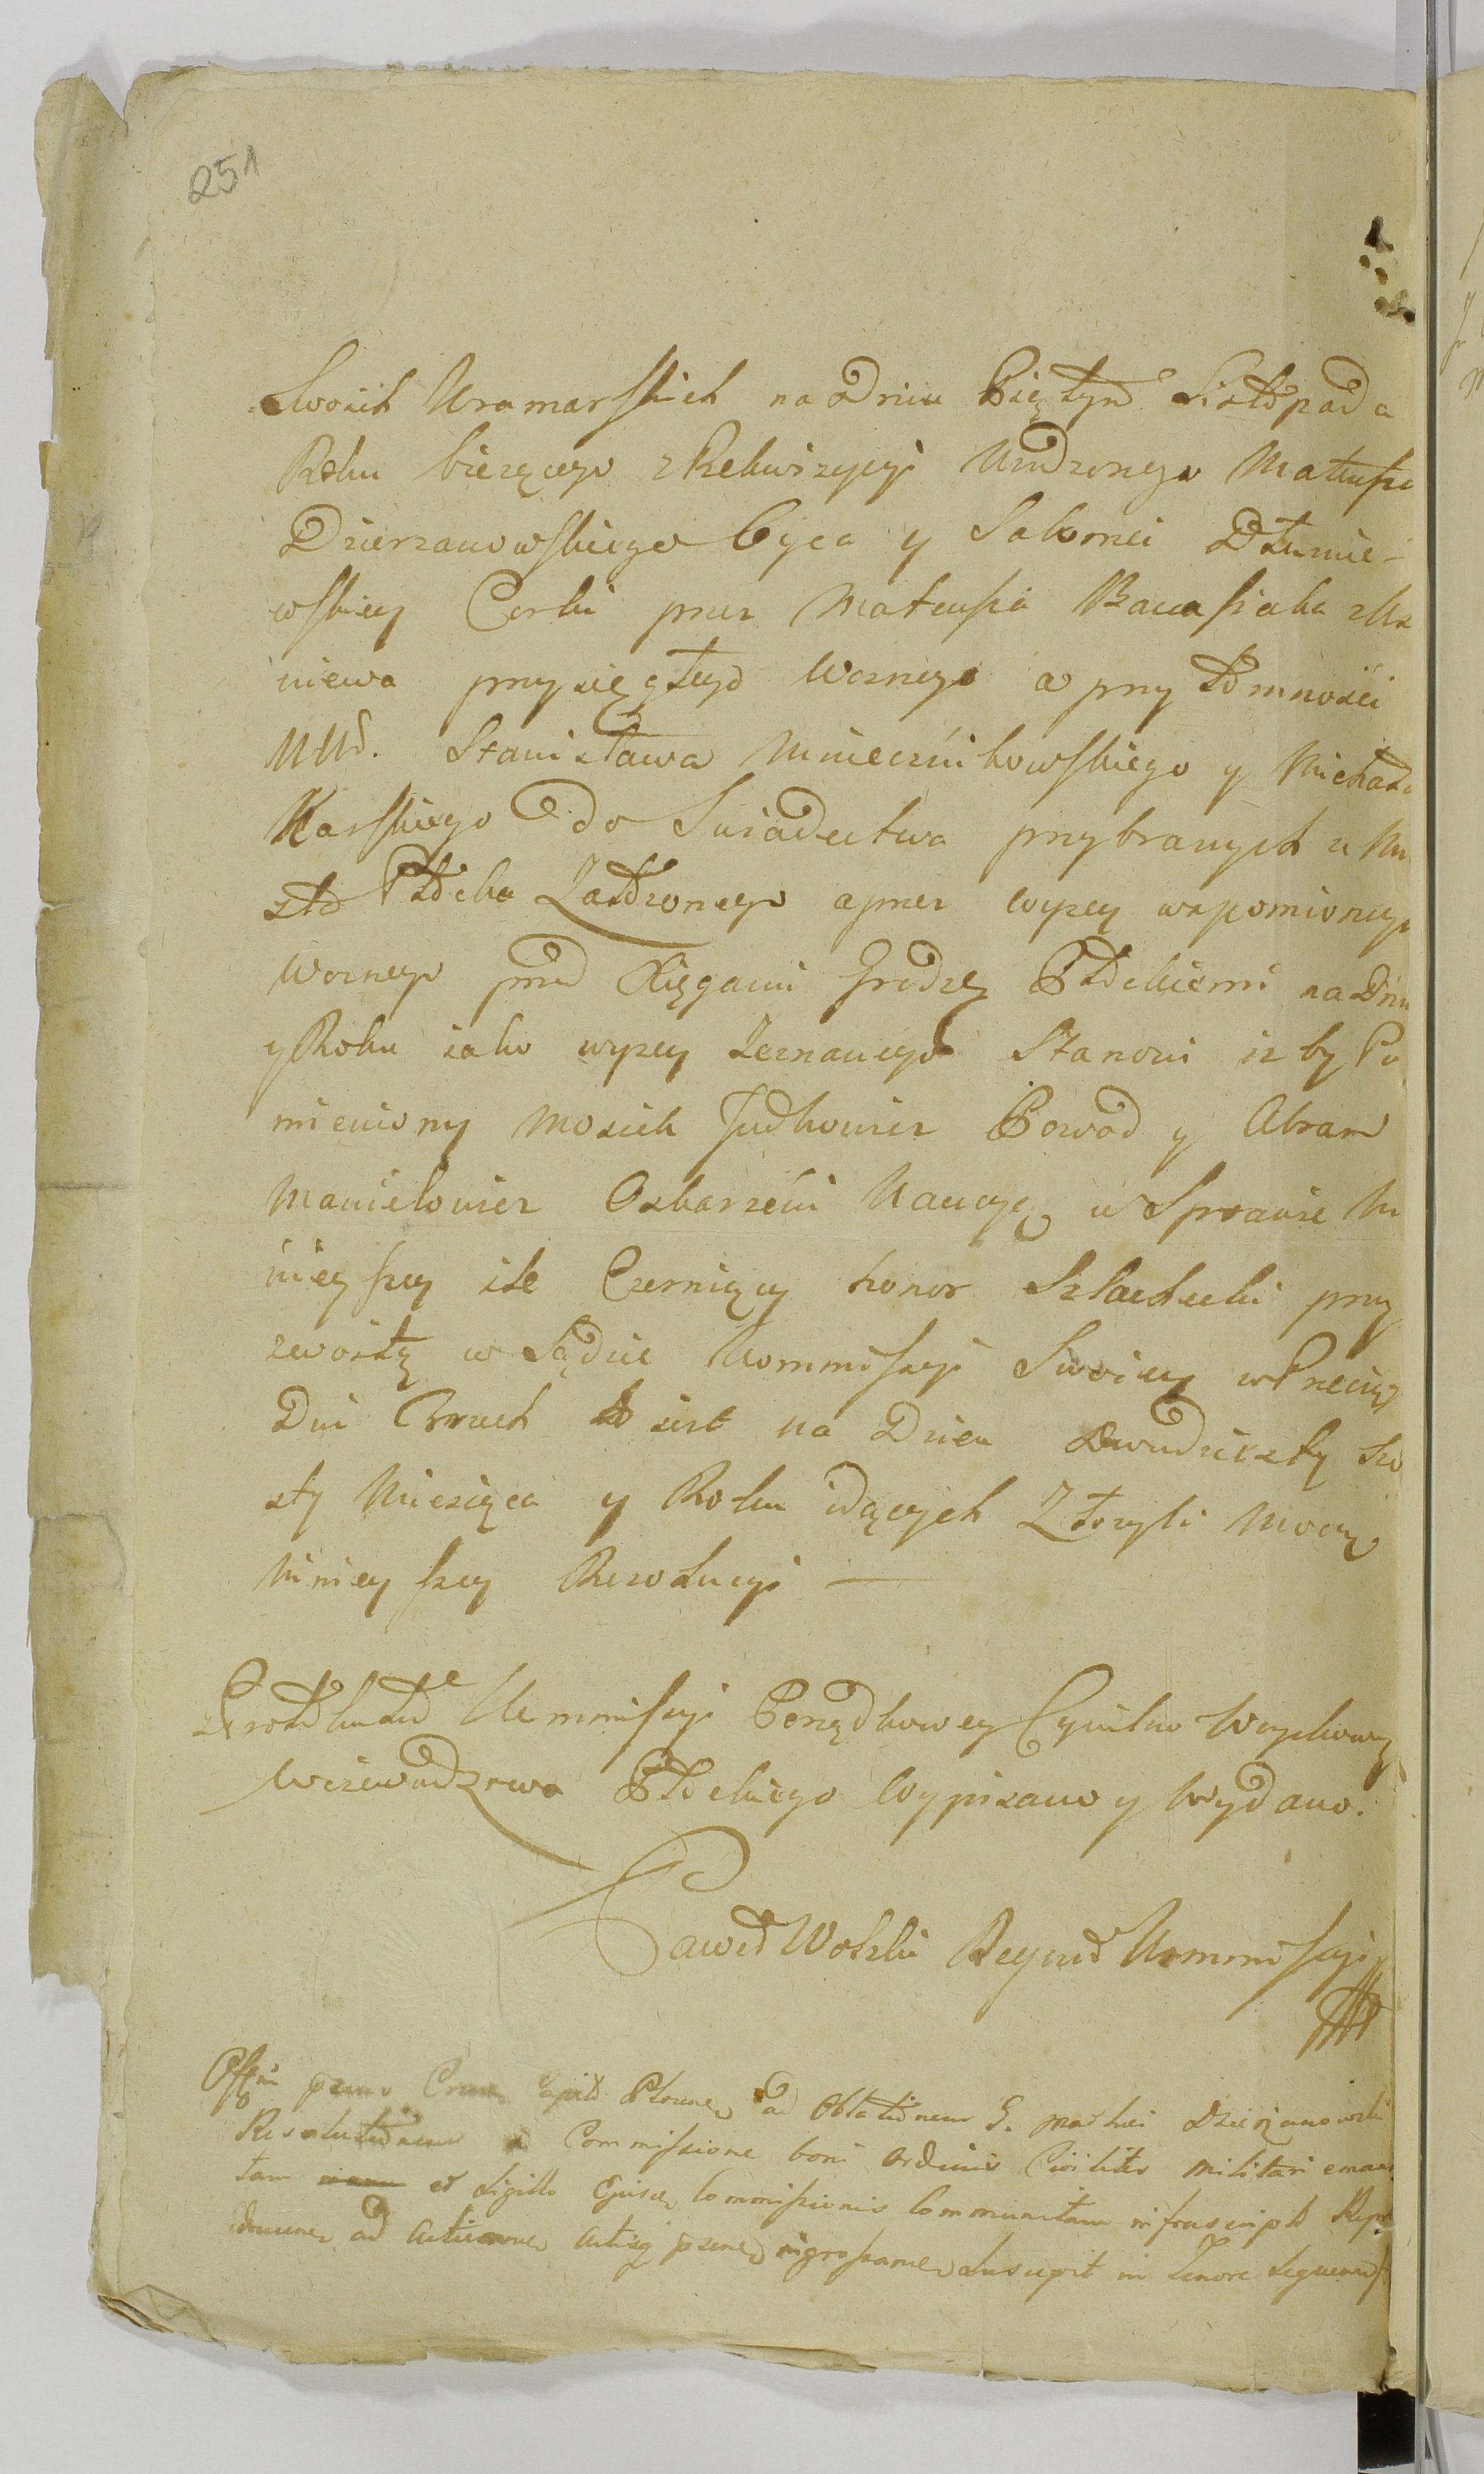 251
Swoich Kramarskich na Dniu Piętym Listopada
Roku bieżącego z Rekwizycyi Urodzonego Mateusza
Dzierzanowskiego Oyca y Salomei Dłunie-
wskiey Corki przez Mateusza Banasiaka z
niewa przysięgłego Woznego w przytomności
UUr. Stanisława Mniecznikowskiego y Michała
Karskiego do Swiadectwa przybranych z
Płocka Zaszłonego a przez wyżey wspomnionego
Woznego przed Xięgami Grodzq Płockiemi na Dniu
y Roku iako wyżey Zeznanego Stanowi iż by Po
mieniony Mosiek Judkowicz Powod y Abram
Manielowicz Oskarżeni Kaucyę w Sprawie Ni
nieyszey ile Czerniący honor Szlachecki przy
zwoitą w Sądzie Kommissyi Swoiey w Przeciąg
Dni Trzech to iest na Dzień Dwudziesty Szo
sty Miesiąca y Roku idących Złożyli Mocą
Ninieyszey Rezolucyi —
z Protokułu Kommissyi Porządkowey Cywilno Woyskowey
Wojewodztwa Płockiego Wypisano y Wydano.
Paweł Wolski Regent Kommissyi
Offm Capit Plocen ad Oblationem G. Mathei Dzierzanowski
Resolutionem a Commissione boni Ordinis Civilis Militari emana
tam et Sigillo Ejusd Commissionis Communitam infrascript
ad Acticanne Actisq pzne ingrossanne Suscepit in Tenore Sequenti